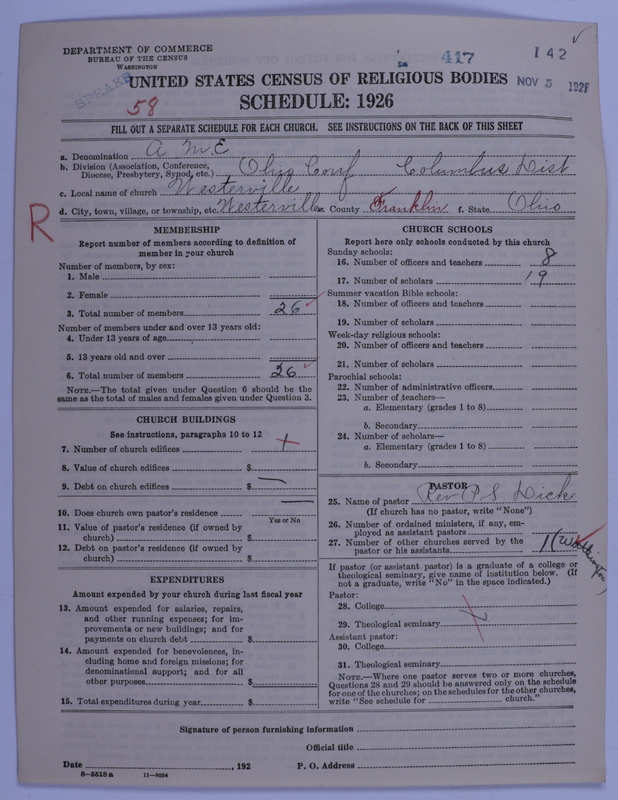 DEPARTMENT OF COMMERCE
BUREAU OF THE CENSUS
WASHINGTON
417
142
NOV 5 192
UNITED STATES CENSUS OF RELIGIOUS BODIES
58
SCHEDULE: 1926
FILL OUT A SEPARATE SCHEDULE FOR EACH CHURCH. SEE INSTRUCTIONS ON THE BACK OF THIS SHEET
a. Denomination A M E
b. Division (Association, Conference, Diocese, Presbytery, Synod, etc.) Ohio Conf Columbus Dist
c. Local name of church Westerville
d. City, town, village, or township, etc. Westerville e. County Franklin f. State Ohio
R
MEMBERSHIP
Report number of members according to definition of
member in your church
Number of members, by sex:
1. Male
2. Female
3. Total number of members 26
Number of members under and over 13 years old:
4. Under 13 years of age
5. 13 years old and over
6. Total number of members 26
NOTE.—The total given under Question 6 should be the
same as the total of males and females given under Question 3.
CHURCH BUILDINGS
See instructions, paragraphs 10 to 12
7. Number of church edifices
8. Value of church edifices $
9. Debt on church edifices $ —
10. Does church own pastor's residence —
Yes or No
11. Value of pastor's residence (if owned by
church) $
12. Debt on pastor's residence (if owned by
church) $
EXPENDITURES
Amount expended by your church during last fiscal year
13. Amount expended for salaries, repairs,
and other running expenses; for im-
provements or new buildings; and for
payments on church debt $
14. Amount expended for benevolences, in-
cluding home and foreign missions; for
denominational support; and for all
other purposes $
15. Total expenditures during year $
CHURCH SCHOOLS
Report here only schools conducted by this church
Sunday schools:
16. Number of officers and teachers 8
17. Number of scholars 19
Summer vacation Bible schools:
18. Number of officers and teachers
19. Number of scholars
Week-day religious schools:
20. Number of officers and teachers
21. Number of scholars
Parochial schools:
22. Number of administrative officers
23. Number of teachers—
a. Elementary (grades 1 to 8)
b. Secondary
24. Number of scholars—
a. Elementary (grades 1 to 8)
b. Secondary
PASTOR
25. Name of pastor Rev P.S. Dick
(If church has no pastor, write "None")
26. Number of ordained ministers, if any, em-
ployed as assistant pastors
27. Number of other churches served by the
pastor or his assistants 1 (Worthington)
If pastor (or assistant pastor) is a graduate of a college or
theological seminary, give name of institution below. (If
not a graduate, write "No" in the space indicated.)
Pastor:
28. College
29. Theological seminary
Assistant pastor:
30. College
31. Theological seminary
NOTE.—Where one pastor serves two or more churches,
Questions 28 and 29 should be answered only on the schedule
for one of the churches; on the schedules for the other churches,
write "See schedule for church."
Signature of person furnishing information
Official title
Date , 192 P. O. Address
8—5518 a 11—9054